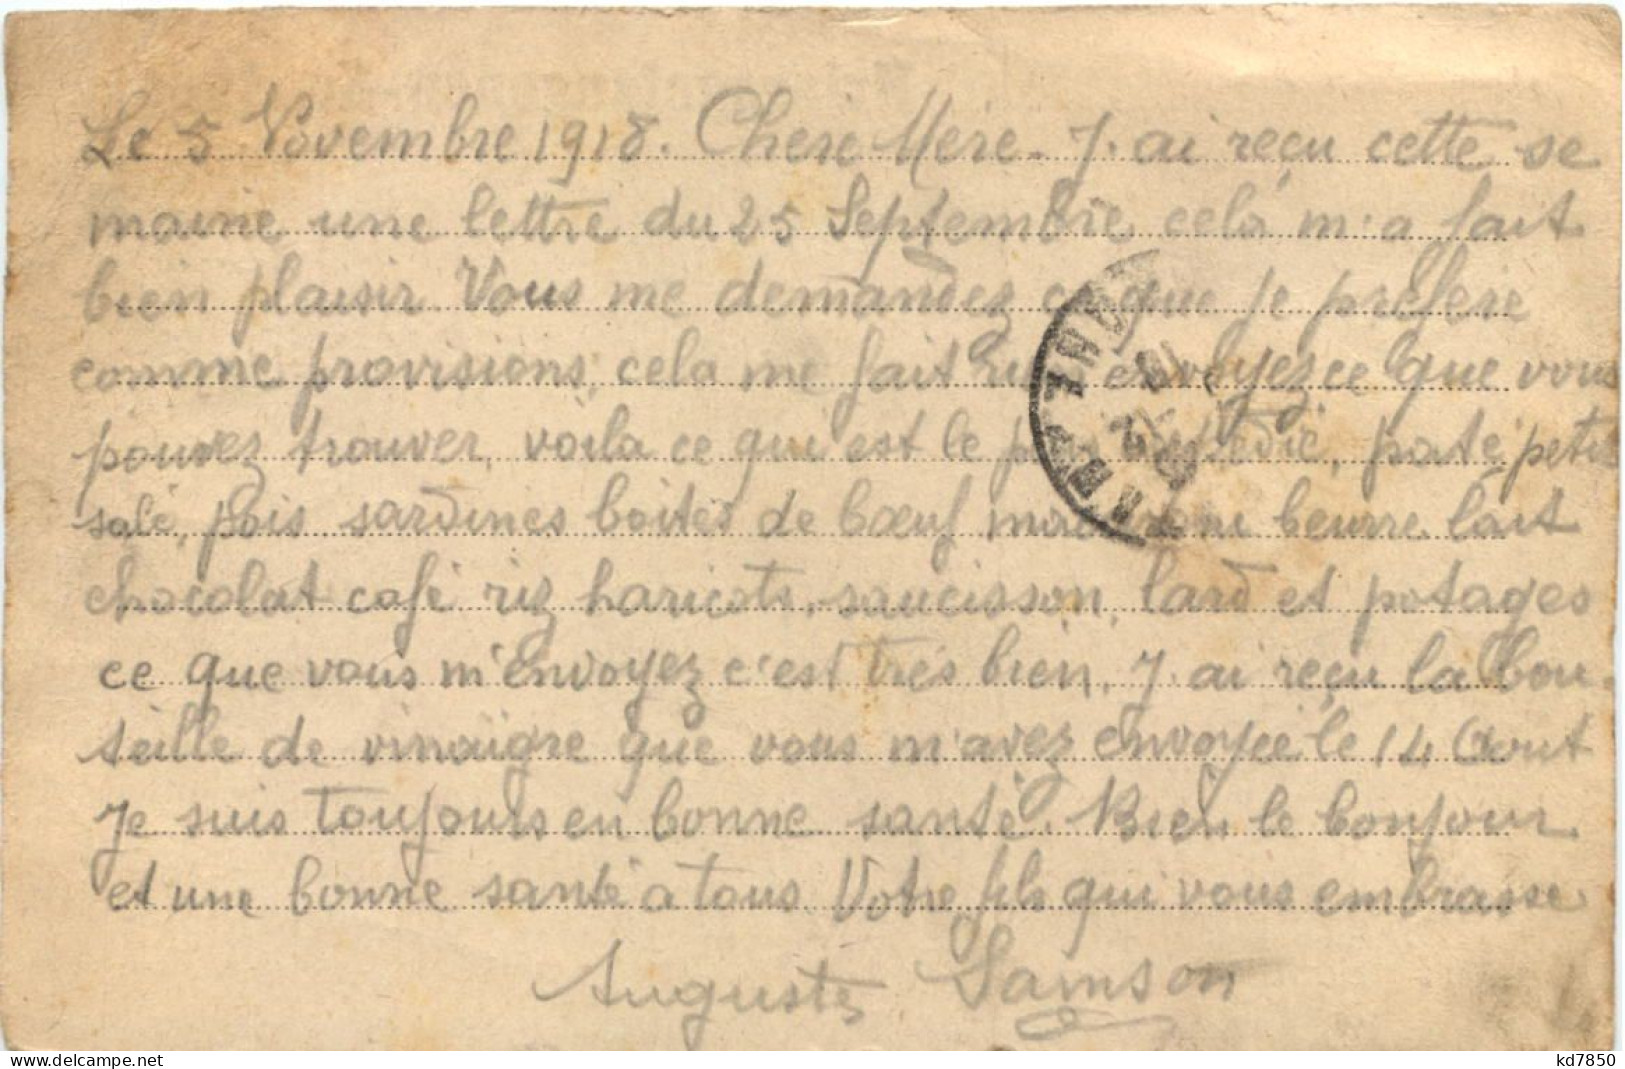 Le 5 Novembre 1918. Chere Mère. J.ai reçu cette se
maine une lettre du 25 Septembre celà m'a fait
bien plaisir. Vous me demandez ce que je prefere
comme provisions, cela me fait rien envoyez ce que vous
pouvez trouver, voila ce qui est le plus expedié, paté petit
salé, pois sardines boites de bœuf, macaroni beurre lait
chocolat café riz haricots, saucisson, lard et potages
ce que vous m'envoyez c'est très bien. J.ai reçu la bou
teille de vinaigre que vous m'avez envoyée le 14 Aout
Je suis toujours en bonne santé. Bien le bonjour
et une bonne santé a tous Votre fils qui vous embrasse
Auguste Samson
kd7850